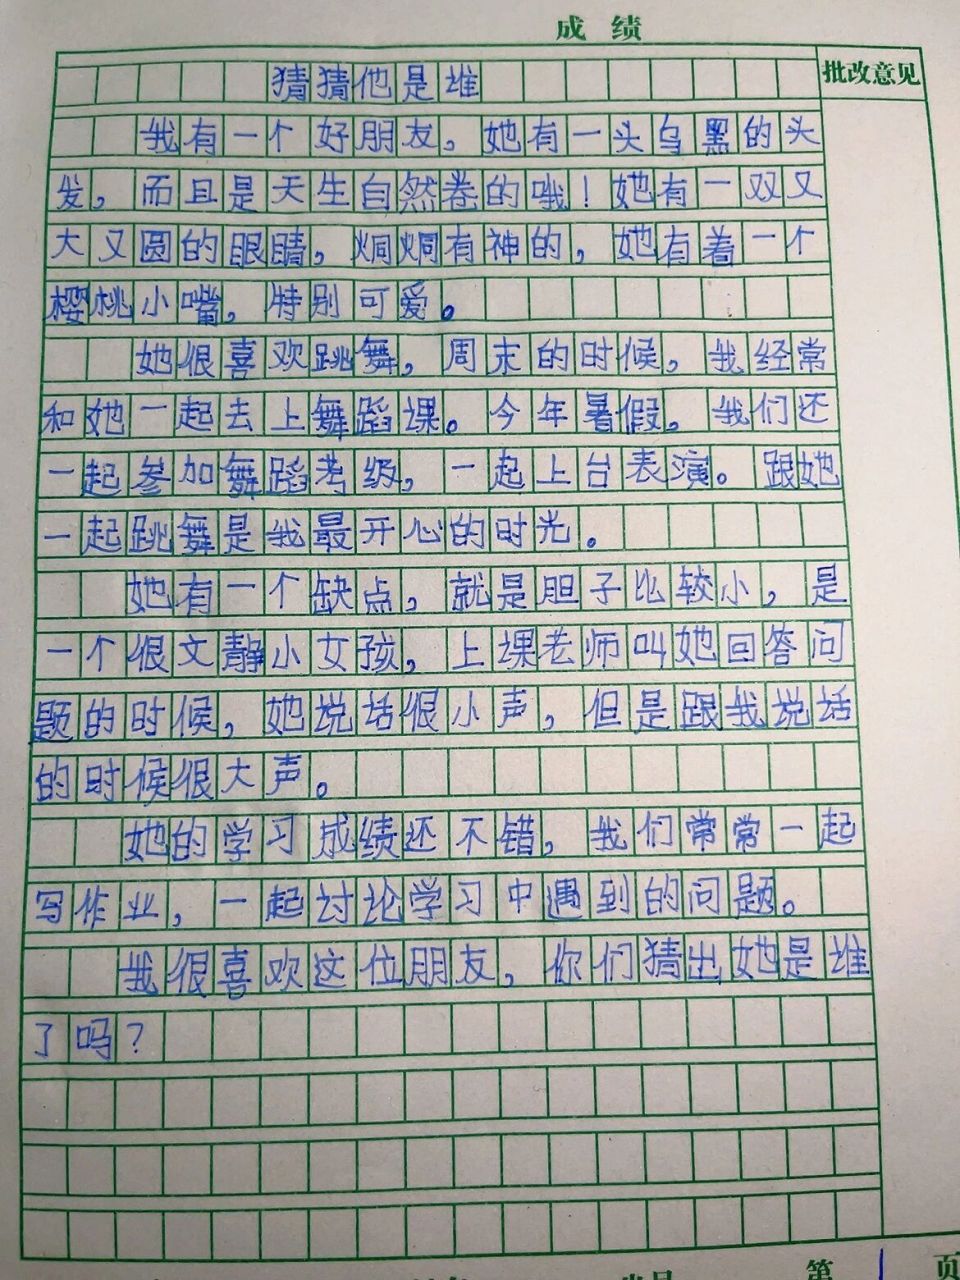 成绩
批改意见
猜猜他是堆
我有一个好朋友，她有一头乌黑的头
发，而且是天生自然卷的哦！她有一双又
大又圆的眼睛，炯炯有神的，她有着一个
樱桃小嘴，特别可爱。
她很喜欢跳舞，周末的时候，我经常
和她一起去上舞蹈课。今年暑假。我们还
一起参加舞蹈考级，一起上台表演。跟她
一起跳舞是我最开心的时光。
她有一个缺点，就是胆子比较小，是
一个很文静小女孩，上课老师叫她回答问
题的时候，她说话很小声，但是跟我说话
的时候很大声。
她的学习成绩还不错，我们常常一起
写作业，一起讨论学习中遇到的问题。
我很喜欢这位朋友，你们猜出她是堆
了吗？
第1页